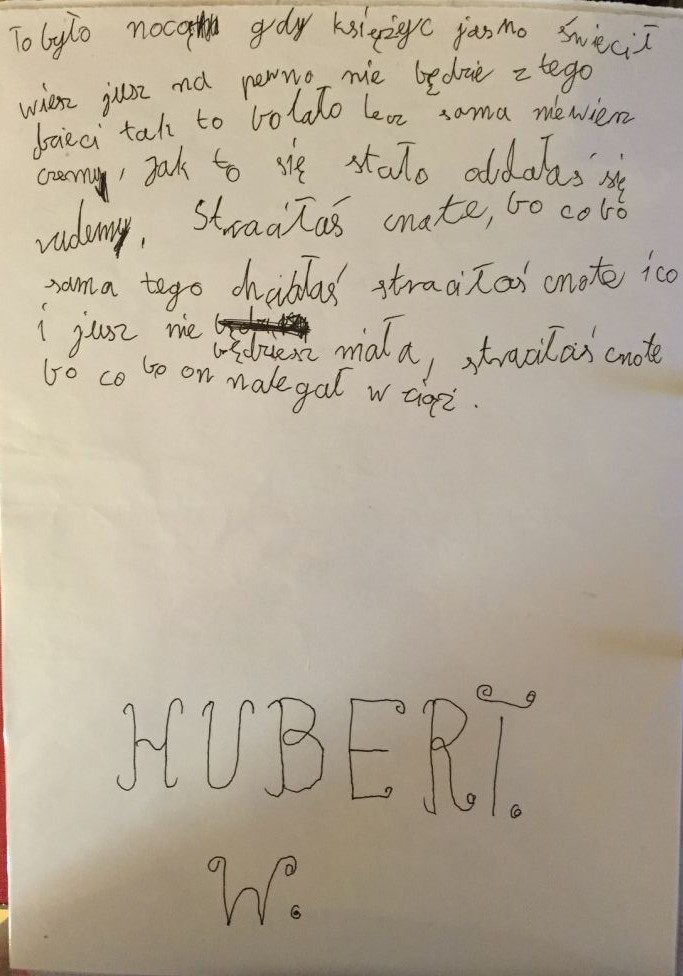 To było nocą gdy księżyc jasno święcił
wiesz jusz na pewno nie będzie z tego
dzieci tak to bolało lecz sama niewiesz
czemy, jak to się stało oddałaś się
rudemy, straciłaś cnote, bo co bo
sama tego chciałaś straciłaś cnote i co
i jusz nie
będziesz miała, straciłaś cnote
bo co bo on nalegał w ciąż.
HUBERT.
W.